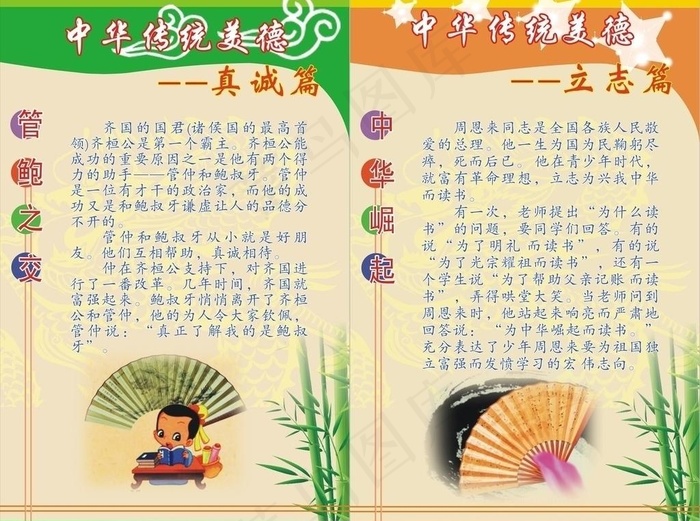 中华传统美德
——真诚篇
管鲍之交
齐国的国君(诸侯国的最高首
领)齐桓公是第一个霸主。齐桓公能
成功的重要原因之一是他有两个得
力的助手——管仲和鲍叔牙。管仲
是一位有才干的政治家，而他的成
功又是和鲍叔牙谦虚让人的品德分
不开的。
管仲和鲍叔牙从小就是好朋
友。他们互相帮助，真诚相待。
仲在齐桓公支持下，对齐国进
行了一番改革。几年时间，齐国就
富强起来。鲍叔牙悄悄离开了齐桓
公和管仲，他的为人令大家钦佩，
管仲说：“真正了解我的是鲍叔
牙”。
中华传统美德
——立志篇
中华崛起
周恩来同志是全国各族人民敬
爱的总理。他一生为国为民鞠躬尽
瘁，死而后已。他在青少年时代，
就富有革命理想，立志为兴我中华
而读书。
有一次，老师提出“为什么读
书”的问题，要同学们回答。有的
说“为了明礼而读书”，有的说
“为了光宗耀祖而读书”，还有一
个学生说“为了帮助父亲记账而读
书”，弄得哄堂大笑。当老师问到
周恩来时，他站起来响亮而严肃地
回答说：“为中华崛起而读书。”
充分表达了少年周恩来要为祖国独
立富强而发愤学习的宏伟志向。